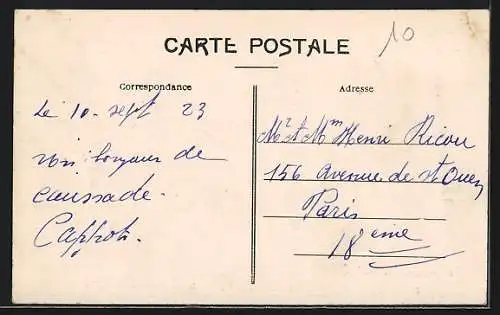 10
CARTE POSTALE
Correspondance
Le 10 sept 23
bonjour de
caussade.
Adresse
Mr et Mm Henri Ricou
156 avenue de St Ouen
Paris
18eme